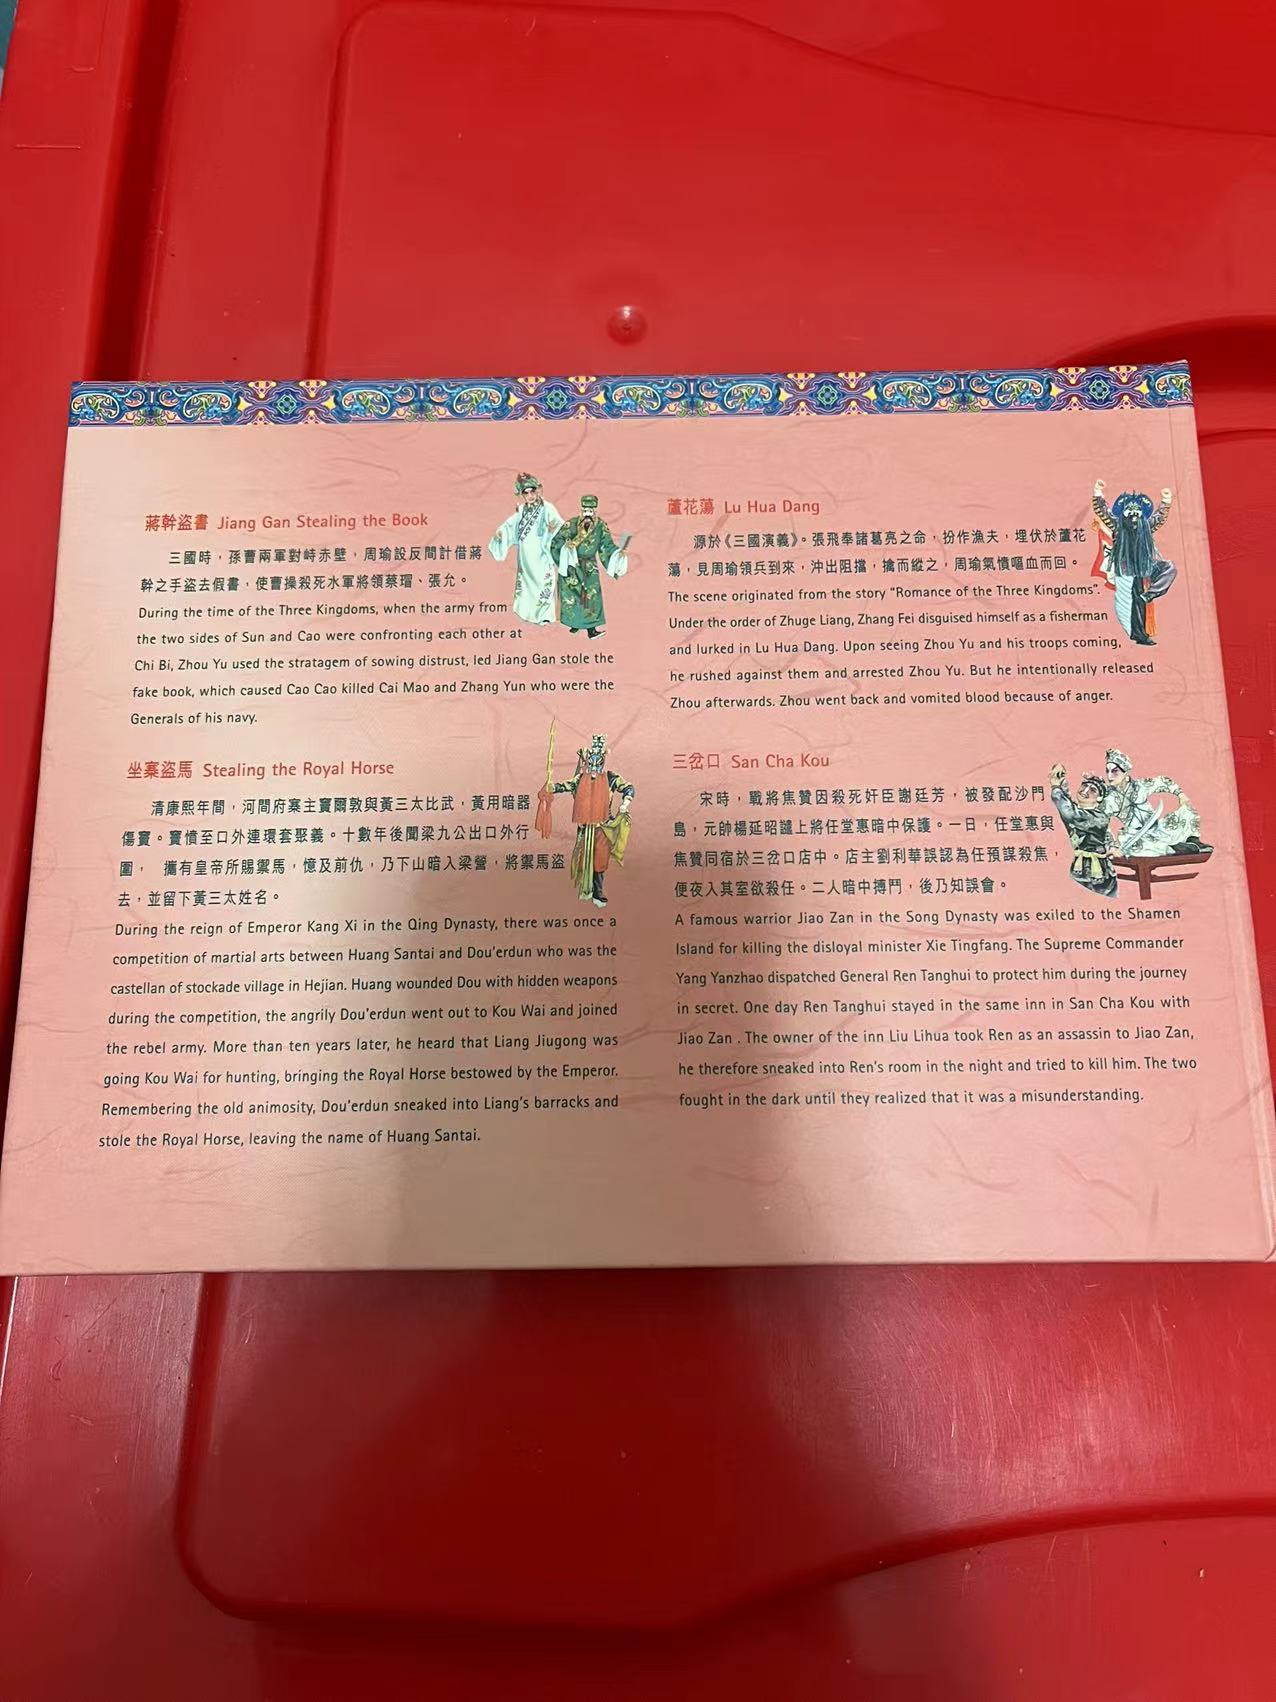 蔣幹盜書 Jiang Gan Stealing the Book
三國時，孫曹兩軍對峙赤壁，周瑜設反間計借蔣
幹之手盜去假書，使曹操殺死水軍將領蔡瑁、張允。
During the time of the Three Kingdoms, when the army from
the two sides of Sun and Cao were confronting each other at
Chi Bi, Zhou Yu used the stratagem of sowing distrust, led Jiang Gan stole the
fake book, which caused Cao Cao killed Cai Mao and Zhang Yun who were the
Generals of his navy.
坐寨盜馬 Stealing the Royal Horse
清康熙年間，河間府寨主竇爾敦與黃三太比武，黃用暗器
傷竇。竇憤至口外連環套聚義。十數年後聞梁九公出口外行
圍， 攜有皇帝所賜禦馬，憶及前仇，乃下山暗入梁營，將禦馬盜
去，並留下黃三太姓名。
During the reign of Emperor Kang Xi in the Qing Dynasty, there was once a
competition of martial arts between Huang Santai and Dou'erdun who was the
castellan of stockade village in Hejian. Huang wounded Dou with hidden weapons
during the competition, the angrily Dou'erdun went out to Kou Wai and joined
the rebel army. More than ten years later, he heard that Liang Jiugong was
going Kou Wai for hunting, bringing the Royal Horse bestowed by the Emperor.
Remembering the old animosity, Dou'erdun sneaked into Liang's barracks and
stole the Royal Horse, leaving the name of Huang Santai.
蘆花蕩 Lu Hua Dang
源於《三國演義》。張飛奉諸葛亮之命，扮作漁夫，埋伏於蘆花
蕩，見周瑜領兵到來，沖出阻擋，擒而縱之，周瑜氣憤嘔血而回。
The scene originated from the story "Romance of the Three Kingdoms".
Under the order of Zhuge Liang, Zhang Fei disguised himself as a fisherman
and lurked in Lu Hua Dang. Upon seeing Zhou Yu and his troops coming,
he rushed against them and arrested Zhou Yu. But he intentionally released
Zhou afterwards. Zhou went back and vomited blood because of anger.
三岔口 San Cha Kou
宋時，戰將焦贊因殺死奸臣謝廷芳，被發配沙門
島，元帥楊延昭譴上將任堂惠暗中保護。一日，任堂惠與
焦贊同宿於三岔口店中。店主劉利華誤認為任預謀殺焦，
便夜入其室欲殺任。二人暗中搏鬥，後乃知誤會。
A famous warrior Jiao Zan in the Song Dynasty was exiled to the Shamen
Island for killing the disloyal minister Xie Tingfang. The Supreme Commander
Yang Yanzhao dispatched General Ren Tanghui to protect him during the journey
in secret. One day Ren Tanghui stayed in the same inn in San Cha Kou with
Jiao Zan . The owner of the inn Liu Lihua took Ren as an assassin to Jiao Zan,
he therefore sneaked into Ren's room in the night and tried to kill him. The two
fought in the dark until they realized that it was a misunderstanding.